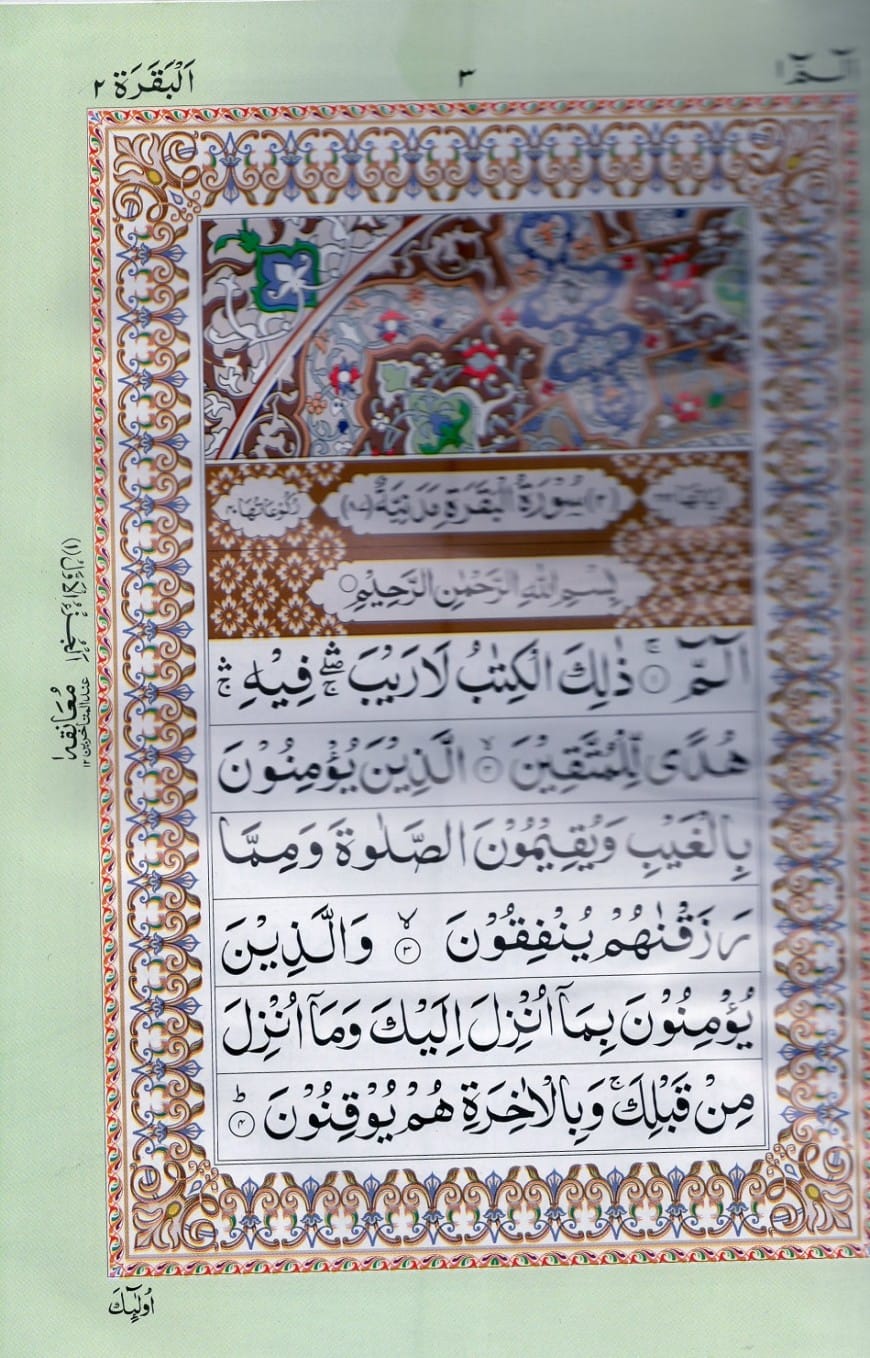 الٓمّٓ
٣
اَلْبَقَرَة ٢
اٰيَاتُهَا
(٢) سُوْرَةُ الْبَقَرَةِ مَدَنِيَّةٌ (٨٧)
رُكُوْعَاتُهَا ٤٠
بِسْمِ اللّٰهِ الرَّحْمٰنِ الرَّحِيْمِ
الٓمّٓ ۚ ١ ذٰلِكَ الْكِتٰبُ لَا رَيْبَ ۛۖۚ فِيْهِ ۛۚ
هُدًى لِّلْمُتَّقِيْنَ ۙ ٢ الَّذِيْنَ يُؤْمِنُوْنَ
بِالْغَيْبِ وَيُقِيْمُوْنَ الصَّلٰوةَ وَمِمَّا
رَزَقْنٰهُمْ يُنْفِقُوْنَ ۙ ٣ وَالَّذِيْنَ
يُؤْمِنُوْنَ بِمَآ اُنْزِلَ اِلَيْكَ وَمَآ اُنْزِلَ
مِنْ قَبْلِكَ ۚ وَبِالْاٰخِرَةِ هُمْ يُوْقِنُوْنَ ؕ ٤
مُعَانقہ ١
عند المتأخرين ١٢
اُولٰٓئِكَ